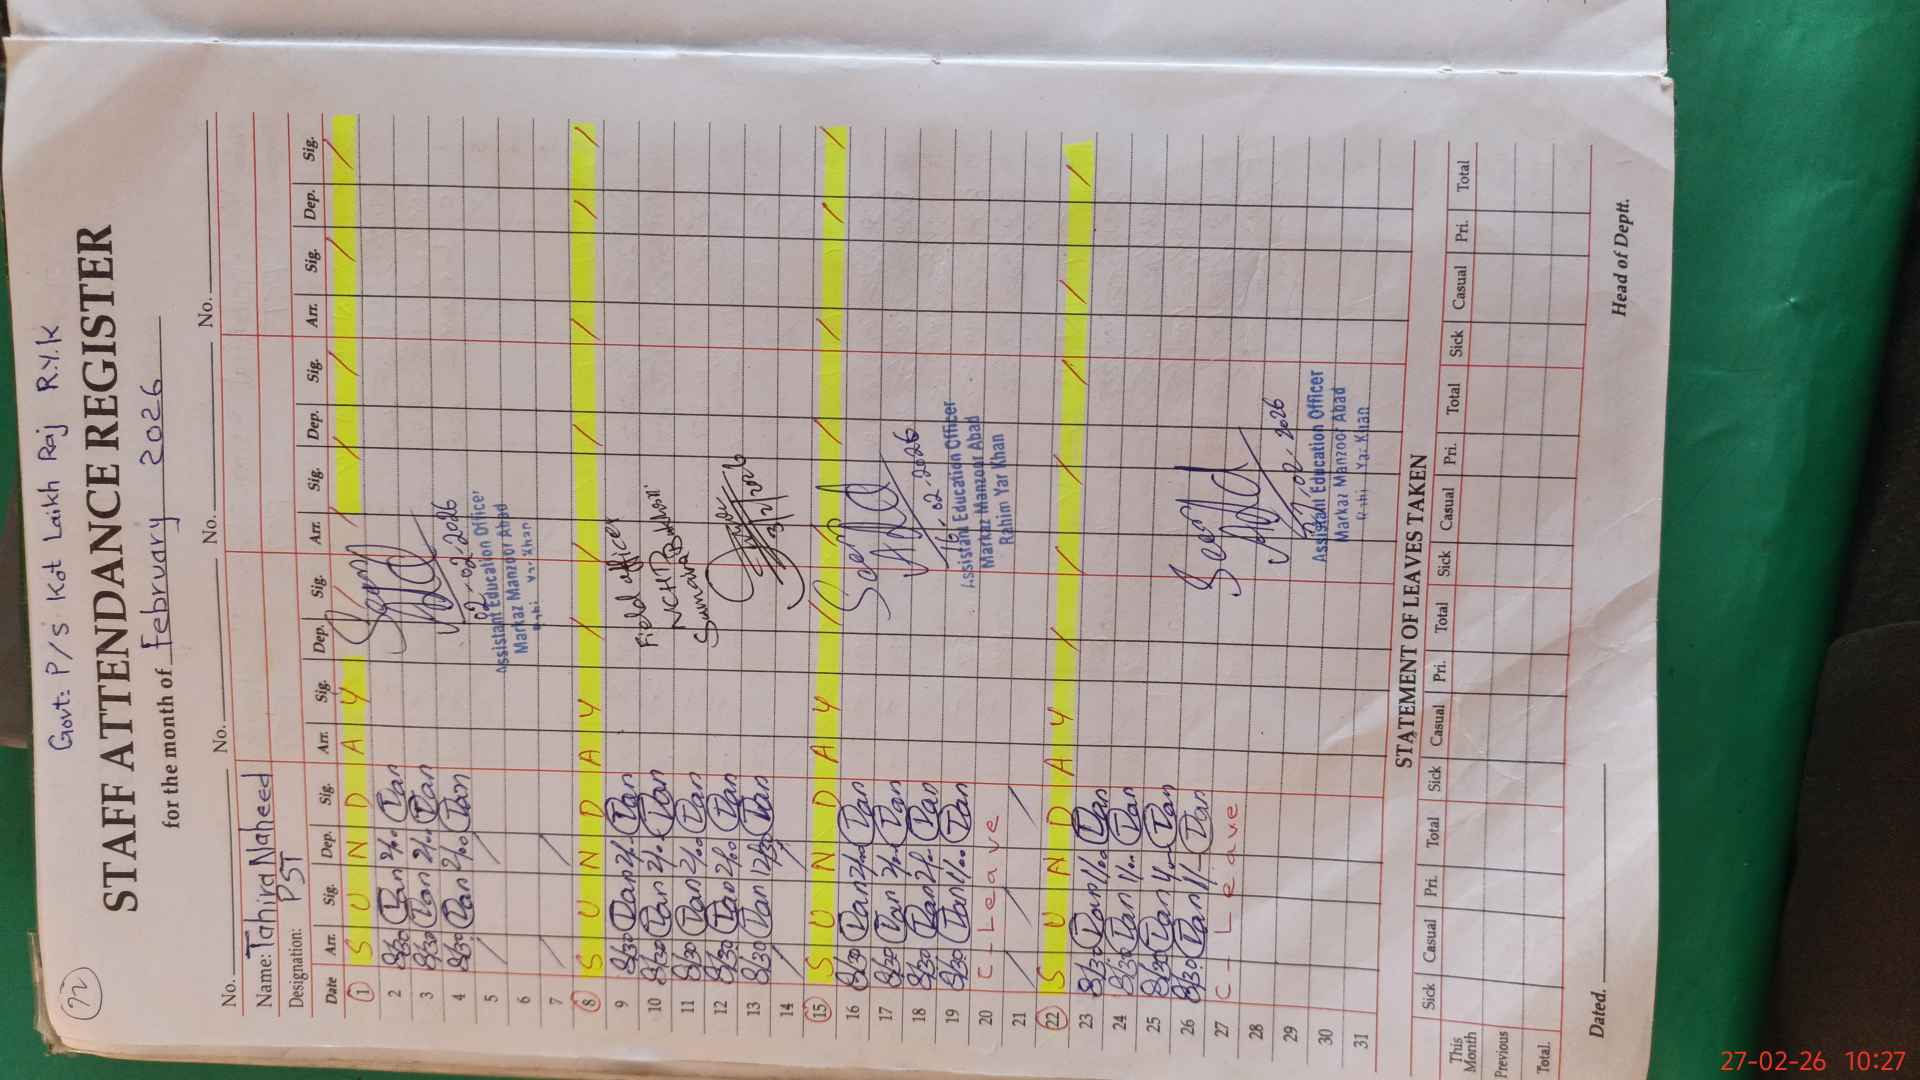 72
Govt: P/s Kot Laikh Raj R.Y.K
STAFF ATTENDANCE REGISTER
for the month of February 2026
No. No. No. No.
Name: Tahird Naheed
Designation: PST
Date Arr. Sig. Dep. Sig. Arr. Sig. Dep. Sig. Arr. Sig. Dep. Sig. Arr. Sig. Dep. Sig.
1 S U N D A Y
2 8/30 Tan 2/00 Tan
3 8/30 Tan 2/00 Tan
4 8/30 Tan 2/00 Tan
02-02-2026
Assistant Education Officer
Markaz Manzoor Abad
5
6
7
8 S U N D A Y
9 8/30 Tan 2/00 Tan
10 8/30 Tan 2/00 Tan
Field officer
11 8/30 Tan 2/00 Tan
NCHD
12 8/30 Tan 2/00 Tan
Sumaira
13 8/30 Tan 12/30 Tan
14
15 S U N D A Y
16 8/30 Tan 2/00 Tan
17 8/30 Tan 2/00 Tan
18 8/30 Tan 2/00 Tan
16-02-2026
19 8/30 Tan 1/00 Tan
Assistant Education Officer
Markaz Manzoor Abad
Rahim Yar Khan
20 C - Leave
21
22 S U N D A Y
23 8/30 Tan 1/00 Tan
24 8/30 Tan 1/00 Tan
25 8/30 Tan 1/00 Tan
26 8/30 Tan 1/- Tan
27 C - Leave
28
29
02.2026
30
Assistant Education Officer
Markaz Manzoor Abad
31
Yar Khan
STATEMENT OF LEAVES TAKEN
Sick Casual Pri. Total Sick Casual Pri. Total Sick Casual Pri. Total Sick Casual Pri. Total
This Month
Previous
Total.
Dated.
Head of Deptt.
27-02-26 10:27